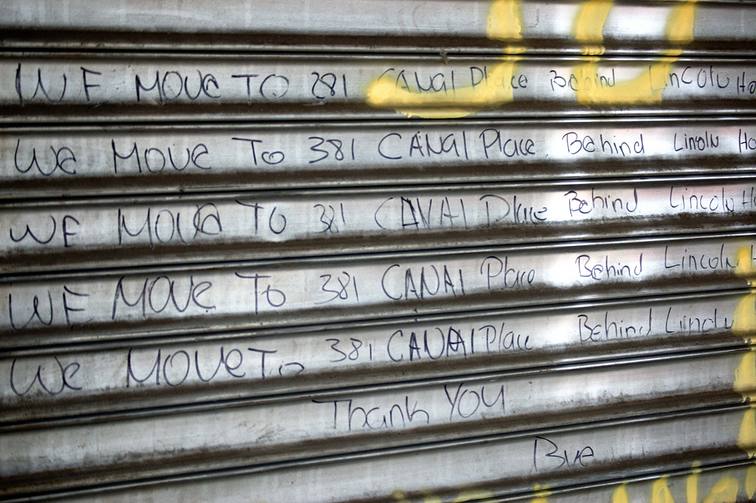 WE MOVE TO 381 CANAl Place Behind Lincoln Ho
We MOVe To 381 CANAl Place Behind Lincoln Ho
WE MOVE TO 381 CANAl Place Behind Lincoln H
WE MOVe To 381 CANAl Place Behind Lincoln
We MOVe To 381 CANAl Place Behind Lincoln
Thank YOU
Bye